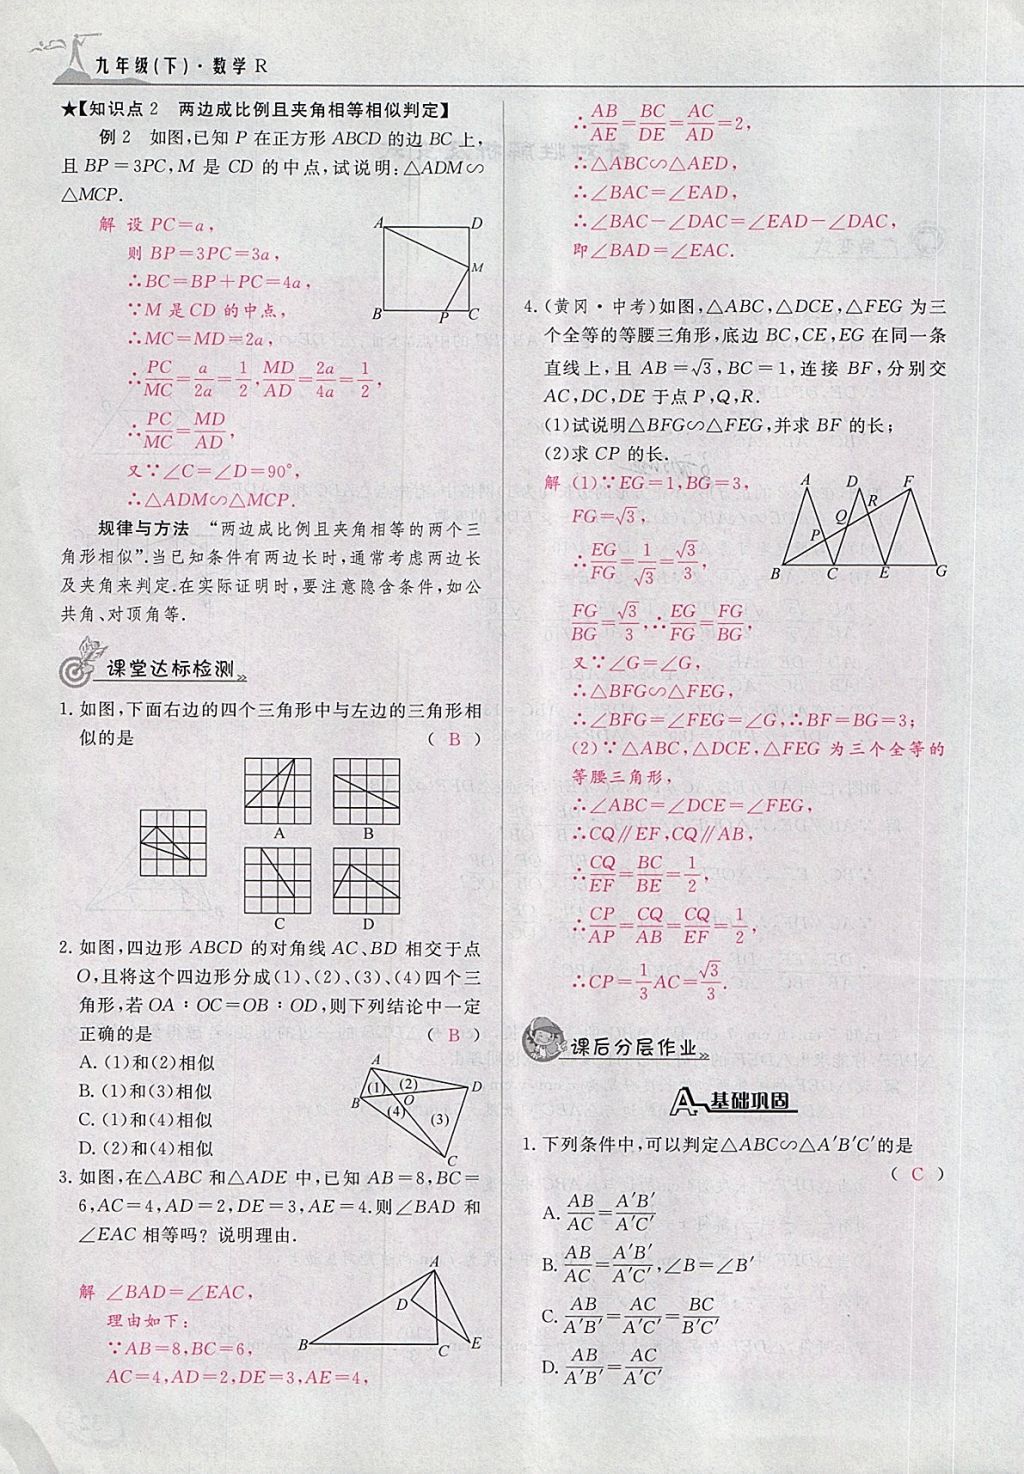 九年级(下)·数学 R
★【知识点2 两边成比例且夹角相等相似判定】
例2 如图,已知 P 在正方形 ABCD 的边 BC 上,
且 BP=3PC,M 是 CD 的中点,试说明:△ADM∽
△MCP.
解 设 PC=a,
则 BP=3PC=3a,
∴BC=BP+PC=4a,
∵M 是 CD 的中点,
∴MC=MD=2a,
∴PC/MC=a/2a=1/2,MD/AD=2a/4a=1/2,
∴PC/MC=MD/AD,
又∵∠C=∠D=90°,
∴△ADM∽△MCP.
A D
M
B P C
规律与方法 “两边成比例且夹角相等的两个三
角形相似”.当已知条件有两边长时,通常考虑两边长
及夹角来判定.在实际证明时,要注意隐含条件,如公
共角、对顶角等.
课堂达标检测
1. 如图,下面右边的四个三角形中与左边的三角形相
似的是 ( B )
A B
C D
2. 如图,四边形 ABCD 的对角线 AC、BD 相交于点
O,且将这个四边形分成(1)、(2)、(3)、(4)四个三
角形,若 OA∶OC=OB∶OD,则下列结论中一定
正确的是 ( B )
A. (1)和(2)相似
B. (1)和(3)相似
C. (1)和(4)相似
D. (2)和(4)相似
A
(1) (2) D
B O
(4) (3)
C
3. 如图,在△ABC 和△ADE 中,已知 AB=8,BC=
6,AC=4,AD=2,DE=3,AE=4.则∠BAD 和
∠EAC 相等吗? 说明理由.
解 ∠BAD=∠EAC,
理由如下:
∵AB=8,BC=6,
AC=4,AD=2,DE=3,AE=4,
A
D
B C E
∴AB/AE=BC/DE=AC/AD=2,
∴△ABC∽△AED,
∴∠BAC=∠EAD,
∴∠BAC-∠DAC=∠EAD-∠DAC,
即∠BAD=∠EAC.
4. (黄冈·中考)如图,△ABC,△DCE,△FEG 为三
个全等的等腰三角形,底边 BC,CE,EG 在同一条
直线上,且 AB=√3,BC=1,连接 BF,分别交
AC,DC,DE 于点 P,Q,R.
(1)试说明△BFG∽△FEG,并求 BF 的长;
(2)求 CP 的长.
解 (1)∵EG=1,BG=3,
FG=√3,
∴EG/FG=1/√3=√3/3,
FG/BG=√3/3,∴EG/FG=FG/BG,
又∵∠G=∠G,
∴△BFG∽△FEG,
∴∠BFG=∠FEG=∠G,∴BF=BG=3;
(2)∵△ABC,△DCE,△FEG 为三个全等的
等腰三角形,
∴∠ABC=∠DCE=∠FEG,
∴CQ∥EF,CQ∥AB,
∴CQ/EF=BC/BE=1/2,
∴CP/AP=CQ/AB=CQ/EF=1/2,
∴CP=1/3AC=√3/3.
A D F
R
Q
P
B C E G
课后分层作业
A 基础巩固
1. 下列条件中,可以判定△ABC∽△A′B′C′的是
( C )
A. AB/AC=A′B′/A′C′
B. AB/AC=A′B′/A′C′,∠B=∠B′
C. AB/A′B′=AC/A′C′=BC/B′C′
D. AB/A′B′=AC/A′C′